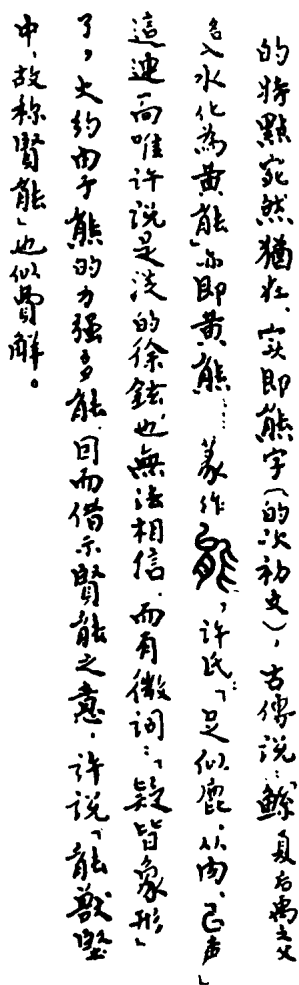 的特點宛然猶在，实即熊字(的次初文)，古傳說：「鯀夏后禹之父
名入水化為黄能」亦即黄熊……篆作，許氏：「足似鹿，从肉，㠯声」
這連一向唯许說是從的徐鉉也無法相信，而有微詞：「疑皆象形」
了，大约由于熊的力强多能，因而借示賢能之意，許說「能獸堅
中，故称賢能」也似費解。